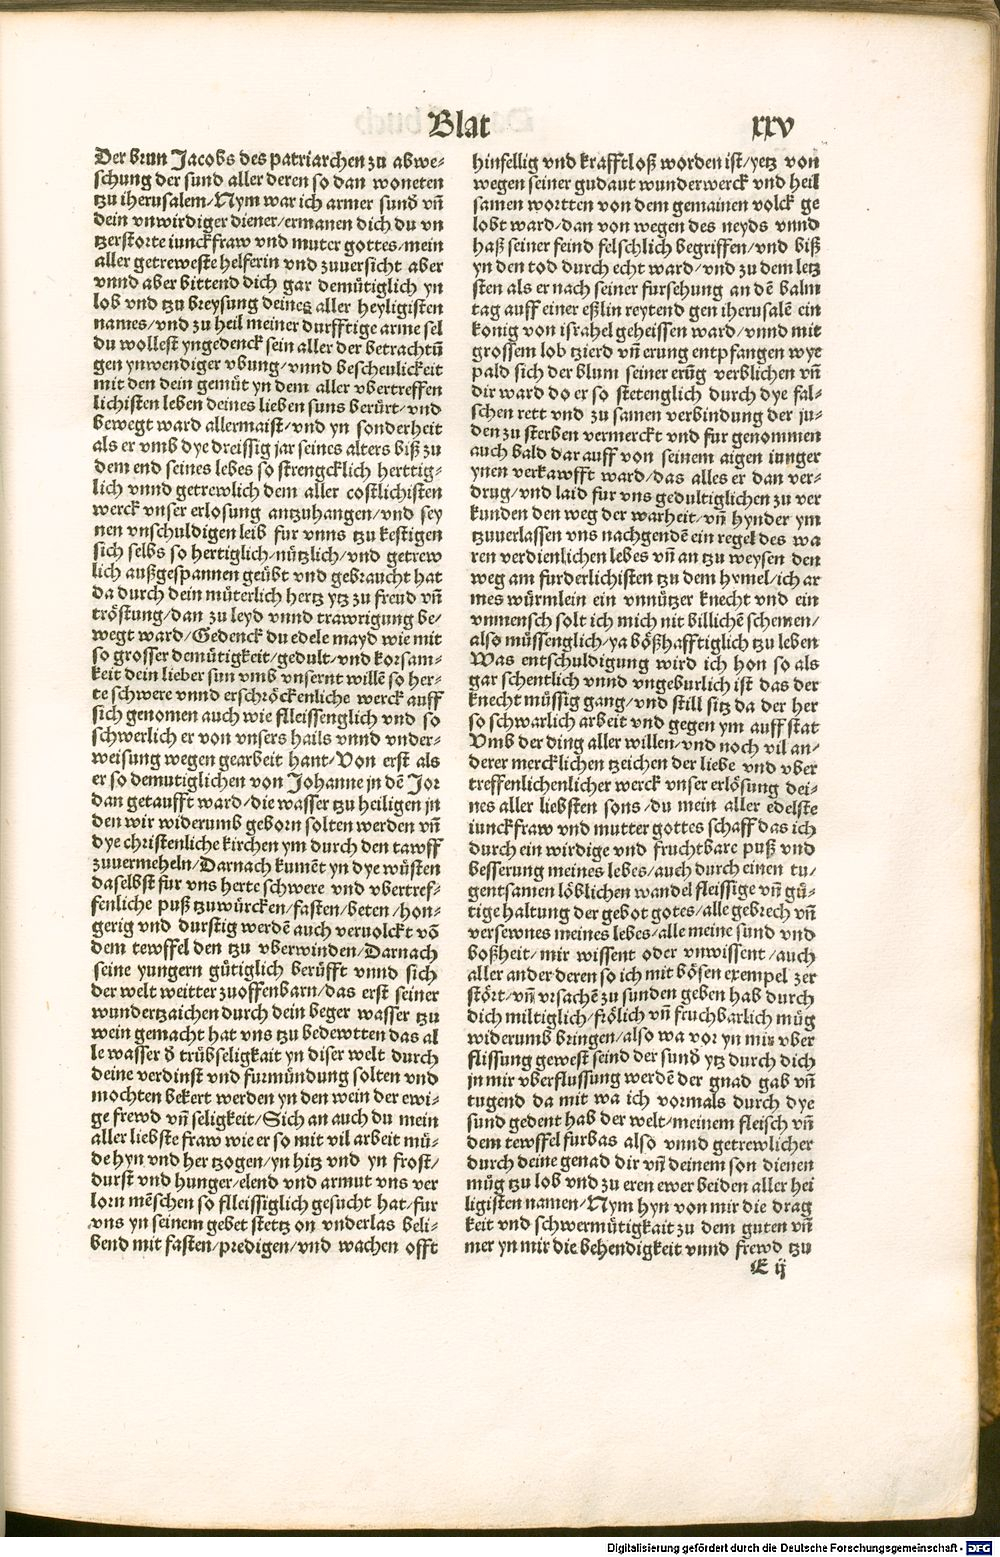 Blat
xxv
Der brun Jacobs des patriarchen zu abwe⸗
schung der sund aller deren so dan woneten
tzu iherusalem/Nym war ich armer sund vñ
dein vnwirdiger diener/ermanen dich du vn
tzerstorte iunckfraw vnd muter gottes/mein
aller getreweste helferin vnd zuuersicht aber
vnnd aber bittend dich gar demütiglich yn
lob vnd tzu breysung deines aller heyligisten
names/vnd zu heil meiner durfftige arme sel
du wollest yngedenck sein aller der betrachtū
gen ynwendiger vbung/vnnd bescheulickeit
mit den dein gemüt yn dem aller vbertreffen
lichisten leben deines lieben suns berürt/vnd
bewegt ward allermaist/vnd yn sonderheit
als er vmb dye dreissig jar seines alters biß zu
dem end seines lebes so strengcklich herttig⸗
lich vnnd getrewlich dem aller costlichisten
werck vnser erlosung antzuhangen/vnd sey
nen vnschuldigen leib fur vnns tzu kestigen
sich selbs so hertiglich/nützlich/vnd getrew
lich außgespannen geübt vnd gebraucht hat
da durch dein müterlich hertz ytz zu freud vñ
tröstung/dan zu leyd vnnd trawrigung be⸗
wegt ward/Gedenck du edele mayd wie mit
so grosser demütigkeit/gedult/vnd korsam⸗
keit dein lieber sun vmb vnsernt willē so her⸗
te schwere vnnd erschröckenliche werck auff
sich genomen auch wie flleissenglich vnd so
schwerlich er von vnsers hails vnnd vnder⸗
weisung wegen gearbeit hant/Von erst als
er so demutiglichen von Johanne jn dē Jor
dan getaufft ward/die wasser tzu heiligen jn
den wir widerumb geborn solten werden vñ
dye christenliche kirchen ym durch den tawff
zuuermeheln/Darnach kumēt yn dye wüsten
daselbst fur vns herte schwere vnd vbertref⸗
fenliche puß tzuwürcken/fasten/beten/hon⸗
gerig vnd durstig werdē auch veruolckt vō
dem tewffel den tzu vberwinden/Darnach
seine yungern gütiglich berüfft vnnd sich
der welt weitter zuoffenbarn/das erst seiner
wundertzaichen durch dein beger wasser tzu
wein gemacht hat vns tzu bedewtten das al
le wasser ð trübseligkait yn diser welt durch
deine verdinst vnd furmündung solten vnd
mochten bekert werden yn den wein der ewi⸗
ge frewd vñ seligkeit/Sich an auch du mein
aller liebste fraw wie er so mit vil arbeit mü⸗
de hyn vnd her tzogen/yn hitz vnd yn frost/
durst vnd hunger/elend vnd armut vns ver
lorn mēschen so flleissiglich gesucht hat/fur
vns yn seinem gebet stettz on vnderlas beli⸗
bend mit fasten/predigen/vnd wachen offt
hinfellig vnd krafftloß worden ist/yetz von
wegen seiner gudaut wunderwerck vnd heil
samen wortten von dem gemainen volck ge
lobt ward/dan von wegen des neyds vnnd
haß seiner feind felschlich begriffen/vnd biß
yn den tod durch echt ward/vnd zu dem letz
sten als er nach seiner fursehung an dē balm
tag auff einer eßlin reytend gen iherusalē ein
konig von israhel geheissen ward/vnnd mit
grossem lob tzierd vñ erung entpfangen wye
pald sich der blum seiner erūg verblichen vñ
dir ward do er so stetenglich durch dye fal⸗
schen rett vnd zu samen verbindung der ju⸗
den zu sterben vermerckt vnd fur genommen
auch bald dar auff von seinem aigen iunger
ynen verkawfft ward/das alles er dan ver⸗
drug/vnd laid fur vns gedultiglichen zu ver
kunden den weg der warheit/vñ hynder ym
tzuuerlassen vns nachgendē ein regel des wa
ren verdienlichen lebes vñ an tzu weysen den
weg am furderlichisten tzu dem hymel/ich ar
mes würmlein ein vnnützer knecht vnd ein
vnmensch solt ich mich nit billichē schemen/
also müssenglich/ya bößhafftiglich tzu leben
Was entschuldigung wird ich hon so als
gar schentlich vnnd vngeburlich ist das der
knecht müssig gang/vnd still sitz da der her
so schwarlich arbeit vnd gegen ym auff stat
Vmb der ding aller willen/vnd noch vil an⸗
derer mercklichen tzeichen der liebe vnd vber
treffenlichenlicher werck vnser erlösung dei⸗
nes aller liebsten sons/du mein aller edelste
iunckfraw vnd mutter gottes schaff das ich
durch ein wirdige vnd fruchtbare puß vnd
besserung meines lebes/auch durch einen tu⸗
gentsamen löblichen wandel fleissige vñ gü⸗
tige haltung der gebot gotes/alle gebrech vñ
versewnes meines lebes/alle meine sund vnd
boßheit/mir wissent oder vnwissent/auch
aller ander deren so ich mit bösen exempel zer
stört/vñ vrsachē zu sunden geben hab durch
dich miltiglich/frölich vñ fruchbarlich müg
widerumb bringen/also wa vor yn mir vber
flissung gewest seind der sund ytz durch dich
jn mir vberflussung werdē der gnad gab vñ
tugend da mit wa ich vormals durch dye
sund gedent hab der welt/meinem fleisch vñ
dem tewffel furbas also vnnd getrewlicher
durch deine genad dir vñ deinem son dienen
müg tzu lob vnd zu eren ewer beiden aller hei
ligisten namen/Nym hyn von mir die drag
keit vnd schwermütigkait zu dem guten vñ
mer yn mir die behendigkeit vnnd frewd tzu
E ij
Digitalisierung gefördert durch die Deutsche Forschungsgemeinschaft - DFG